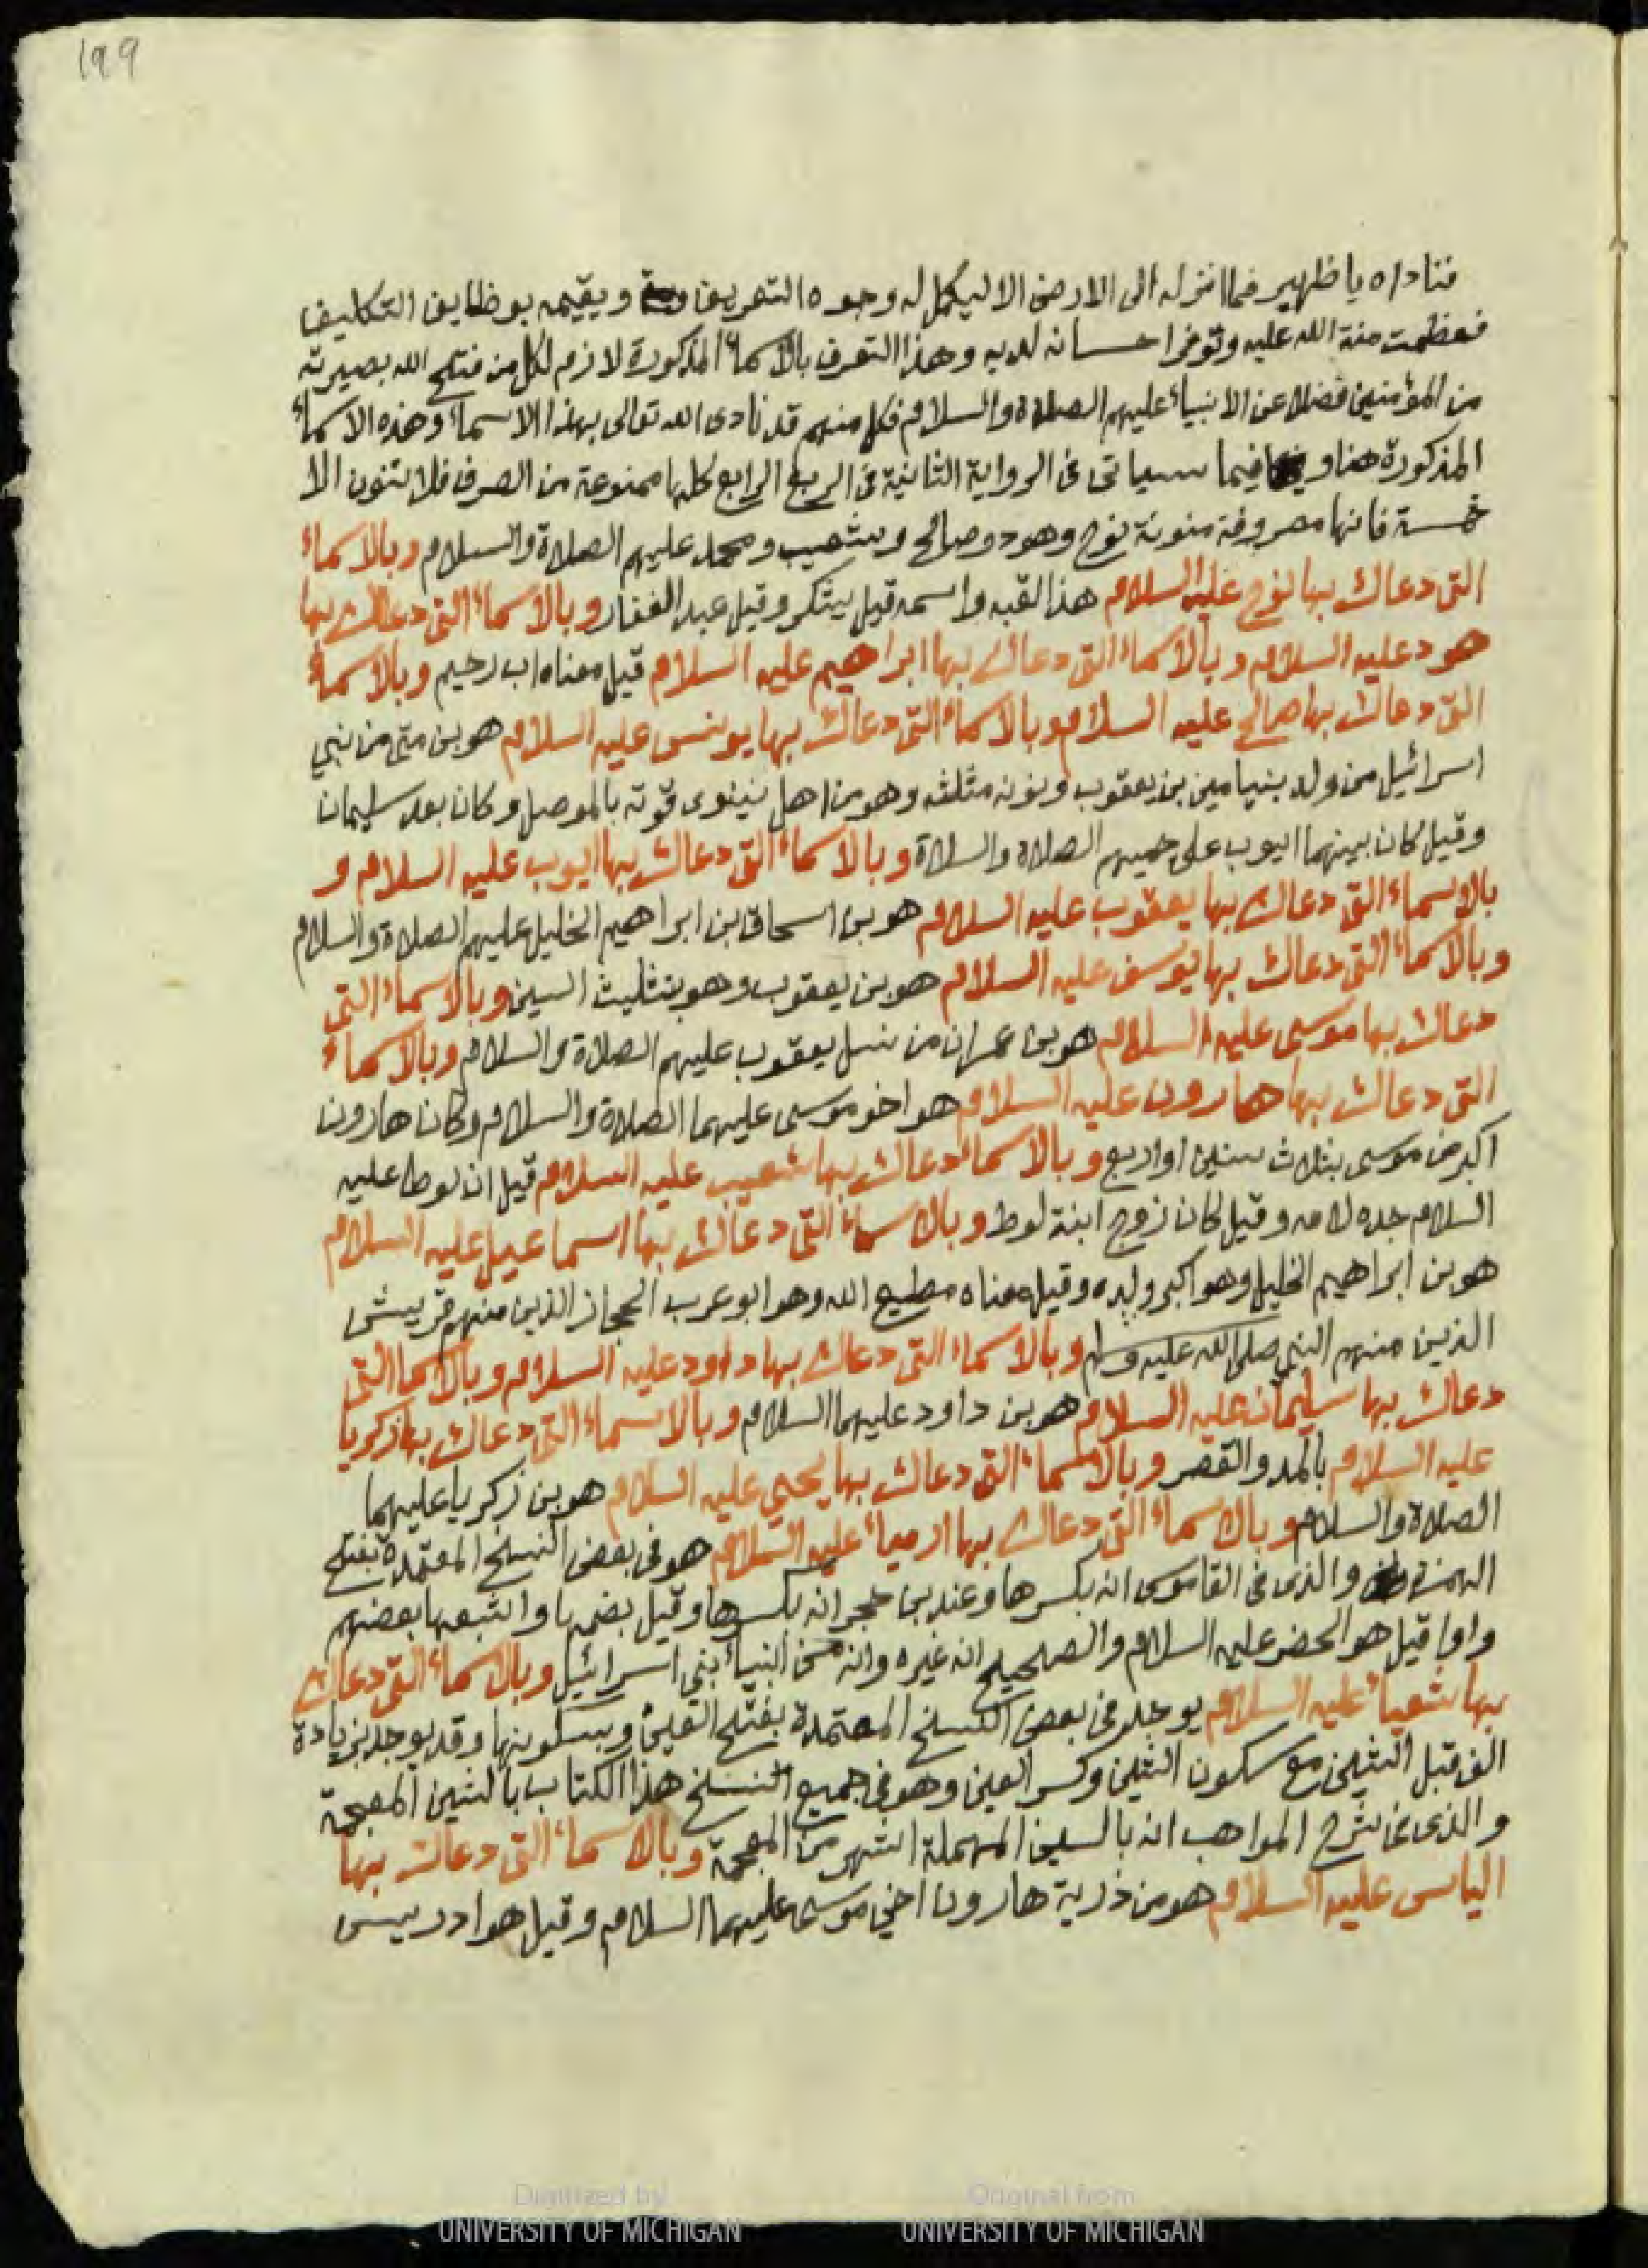 199
فناداه يا ظهير فما انزله الى الارض الا ليكمل له وجوه التعريف ويقيمه بوظايف التكاليف
فعظمت منة الله عليه وتوفر احسانه لديه وهذا التعرف بالاسماء المذكورة لازم لكل من فتح الله بصيرته
من المؤمنين فضلا عن الانبياء عليهم الصلاة والسلام فكل منهم قد نادى الله تعالى بهذا الاسماء وهذه الاسماء
المذكورة هنا وفيما سياتى فى الرواية الثانية فى الربع الرابع كلها ممنوعة من الصرف فلا تنون الا
خمسة فانها مصروفة منونة نوح وهود وصالح وشعيب ومحمد عليهم الصلاة والسلام وبالاسماء
التى دعاك بها نوح عليه السلام هذا لقبه واسمه قيل يشكر وقيل عبد الغفار وبالاسماء التى دعاك بها
هود عليه السلام وبالاسماء التى دعاك بها ابراهيم عليه السلام قيل معناه اب رحيم وبالاسماء
التى دعاك بها صالح عليه السلام وبالاسماء التى دعاك بها يونس عليه السلام هو بن متى من بني
اسرائيل من ولد بنيامين بن يعقوب ونونه مثلثه وهو من اهل نينوى قوته بالموصل وكان بعد سليمان
وقيل كان بينهما ايوب على جميهم الصلاة والسلاة وبالاسماء التى دعاك بها ايوب عليه السلام و
بالاسماء التى دعاك بها يعقوب عليه السلام هو بن اسحاق بن ابراهيم الخليل عليهم الصلاة والسلام
وبالاسماء التى دعاك بها يوسف عليه السلام هو بن يعقوب وهو بتثليث السين وبالاسماء التى
دعاك بها موسى عليه السلام هو بن عمران من نسل يعقوب عليهم الصلاة والسلام وبالاسماء
التى دعاك بها هارون عليه السلام هو اخو موسى عليهما الصلاة والسلام وكان هارون
اكبر من موسى بثلاث سنين او اربع وبالاسما دعاك بها شعيب عليه السلام قيل ان لوطا عليه
السلام جده لامه وقيل كان زوج ابنة لوط وبالاسماء التى دعاك بها اسماعيل عليه السلام
هو بن ابراهيم الخليل وهو اكبر ولده وقيل معناه مطيع الله وهو ابو عرب الحجاز الذين منهم قريش
الذين منهم النبي صلى الله عليه وسلم وبالاسماء التى دعاك بها داود عليه السلام وبالاسما التى
دعاك بها سليمان عليه السلام هو بن داود عليهما السلام وبالاسماء التى دعاك بها زكريا
عليه السلام بالمد والقصر وبالاسماء التى دعاك بها يحيى عليه السلام هو بن زكريا عليهما
الصلاة والسلام وبالاسماء التى دعاك بها ارمياء عليه السلام هو فى بعض النسخ المعتمدة بفتح
الهمزة والذى فى القاموس انه بكسرها وعند بن حجر انه بكسرها وقيل بضمها واشبعها بعضهم
واوا قيل هو الخضر عليه السلام والصحيح انه غيره وانه من انبياء بنى اسرائيل وبالاسماء التى دعاك
بها شعياء عليه السلام يوجد فى بعض النسخ المعتمدة بفتح العين وبسكونها وقد يوجد بزيادة
الف قبل الشين مع سكون الشين وكسر العين وهو فى جميع النسخ هذا الكتاب بالشين المعجمة
والذى فى شرح المواهب انه بالسين المهملة اشهر من المعجمة وبالاسماء التى دعاك بها
الياس عليه السلام هو من ذرية هارون اخى موسى عليهما السلام وقيل هو ادريس
Digitized by UNIVERSITY OF MICHIGAN
Original from UNIVERSITY OF MICHIGAN